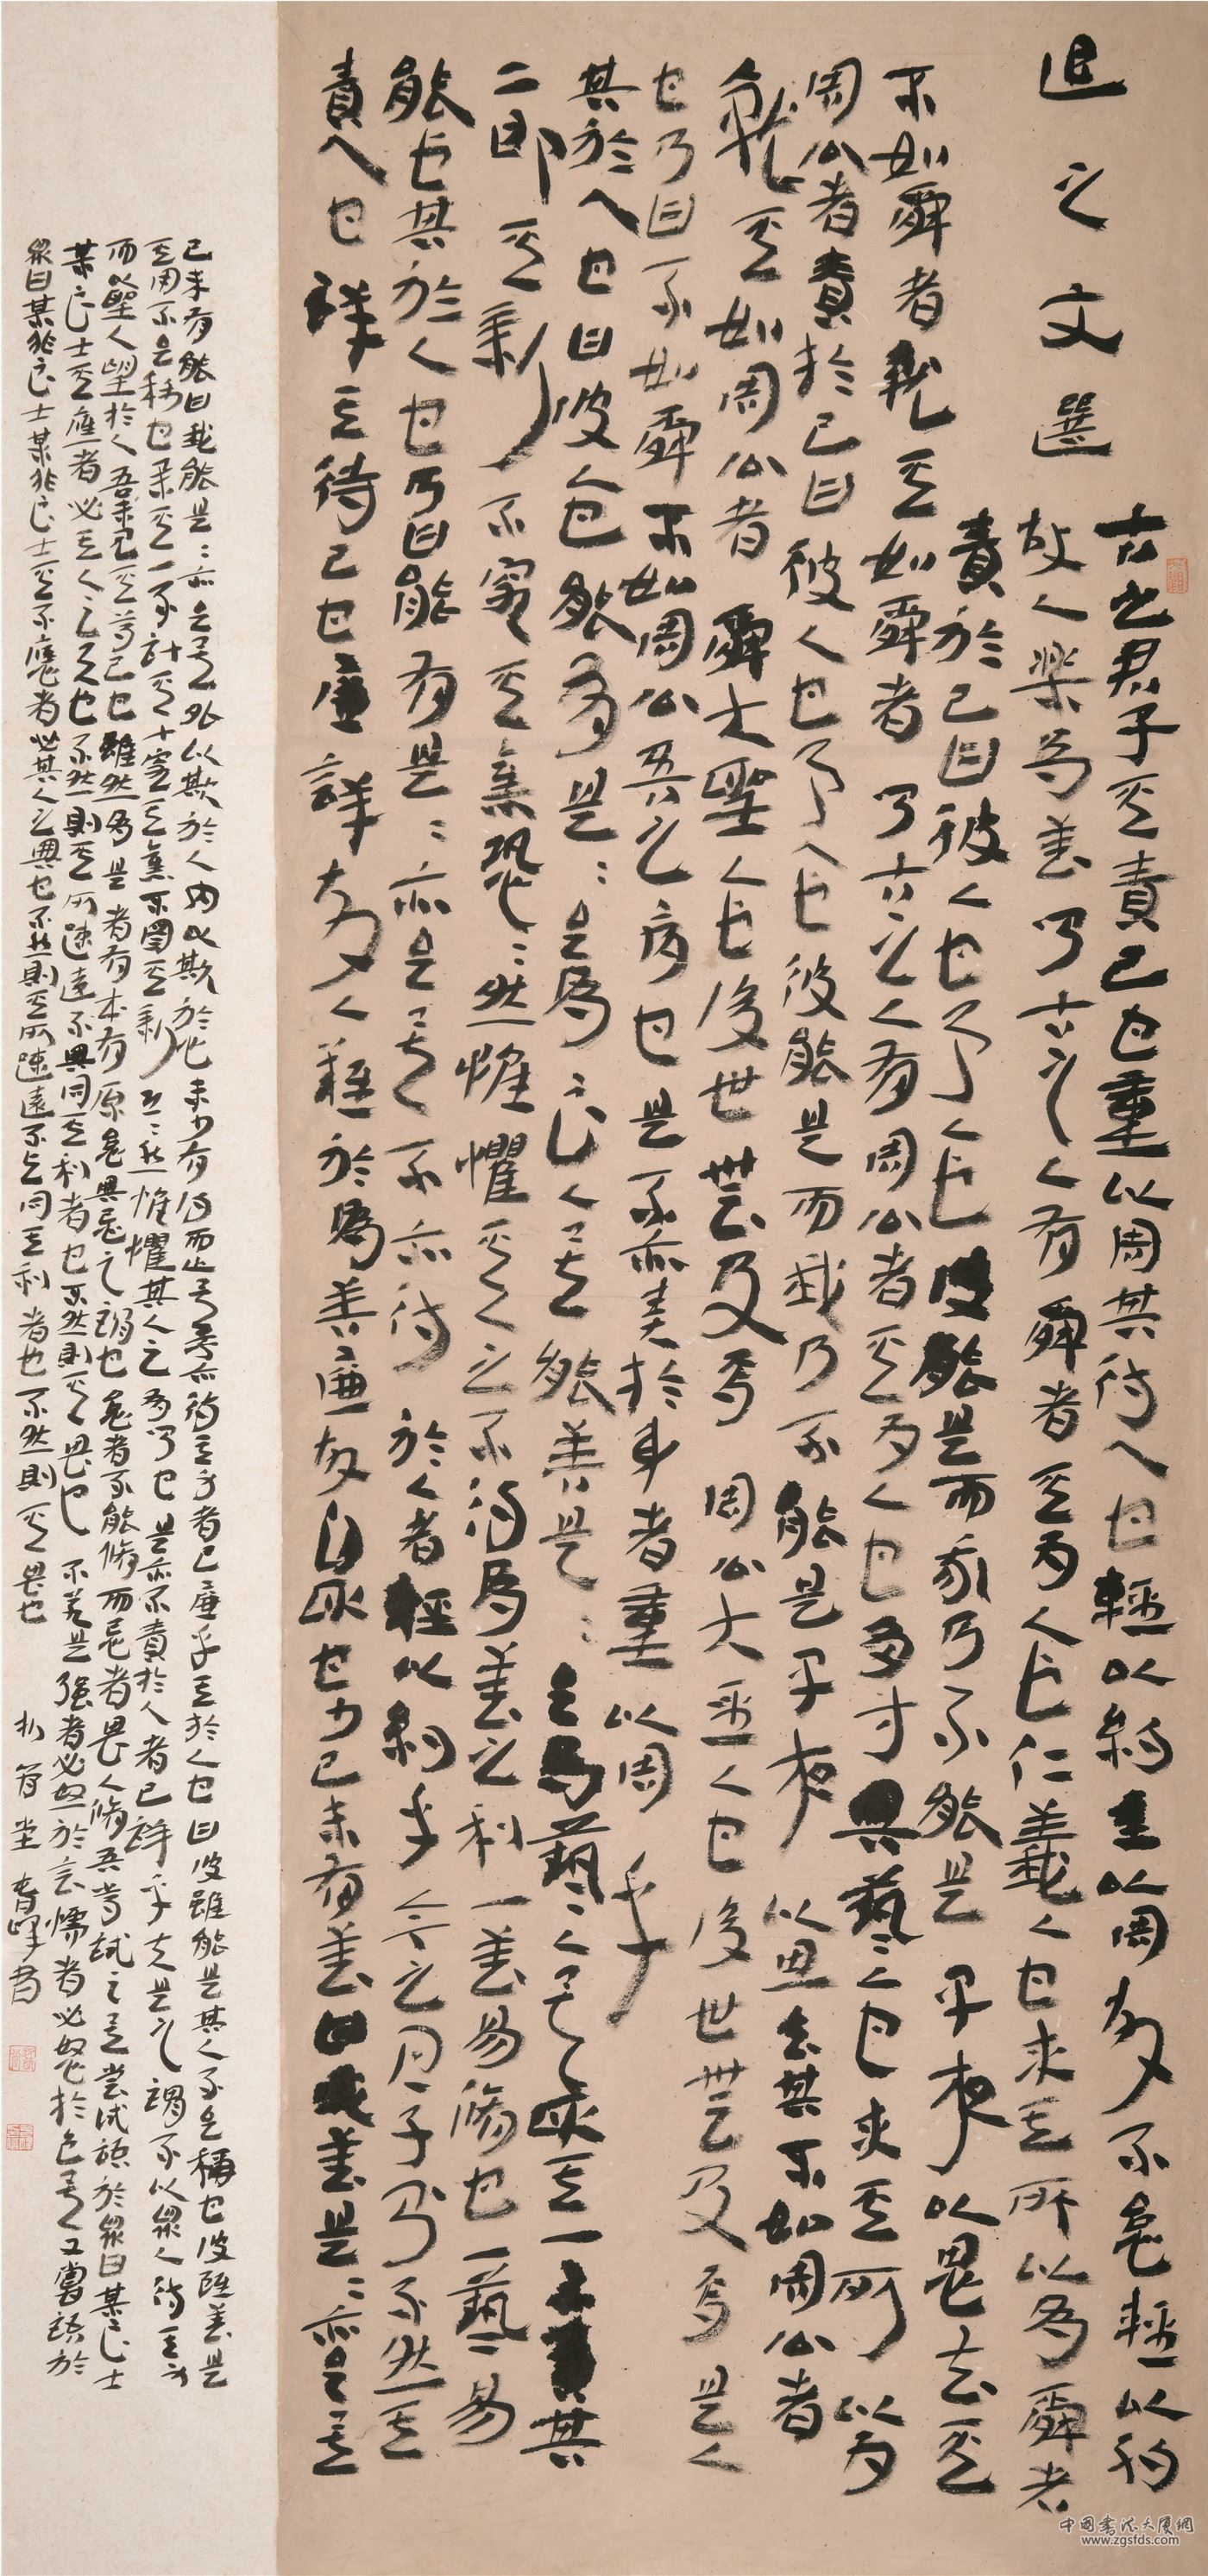 退之文選
古之君子其責己也重以周其待人也輕以約重以周故不怠輕以約
故人樂為善聞古之人有舜者其為人也仁義人也求其所以為舜者
責於己曰彼人也予人也彼能是而我乃不能是早夜以思去其
不如舜者就其如舜者聞古之人有周公者其為人也多才與藝人也求其所以為
周公者責於己曰彼人也予人也彼能是而我乃不能是早夜以思去其不如周公者
就其如周公者舜大聖人也後世無及焉周公大聖人也後世無及焉是人
也乃曰不如舜不如周公吾之病也是不亦責於身者重以周乎
其於人也曰彼人也能有是是足為良人矣能善是是足為藝人矣取其一不責其
二即其新不究其舊恐恐然惟懼其人之不得為善之利一善易脩也一藝易
能也其於人也乃曰能有是是亦足矣不亦待於人者輕以約乎今之君子則不然其
責人也詳其待己也廉詳故人難於為善廉故自取也少己未有善曰我善是是亦足矣
己未有能曰我能是是亦足矣外以欺於人內以欺於心未少有得而止矣不亦待其身者已廉乎其於人也曰彼雖能是其人不足稱也彼雖善是
其用不足稱也舉其一不計其十究其舊不圖其新恐恐然惟懼其人之有聞也是亦不責於人者已詳乎夫是之謂不以眾人待其身
而以聖人望於人吾未見其尊己也雖然為是者有本有原怠與忌之謂也怠者不能脩而忌者畏人脩吾嘗試之矣嘗試語於眾曰某良士
某良士其應者必其人之與也不然則其所疏遠不與同其利者也不然則其畏也不若是強者必怒於言懦者必怒於色矣又嘗語於
眾曰某非良士某非良士其不應者必其人之與也不然則其所疏遠不與同其利者也不然則其畏也
書
中国书法大厦網
www.zgsfds.com